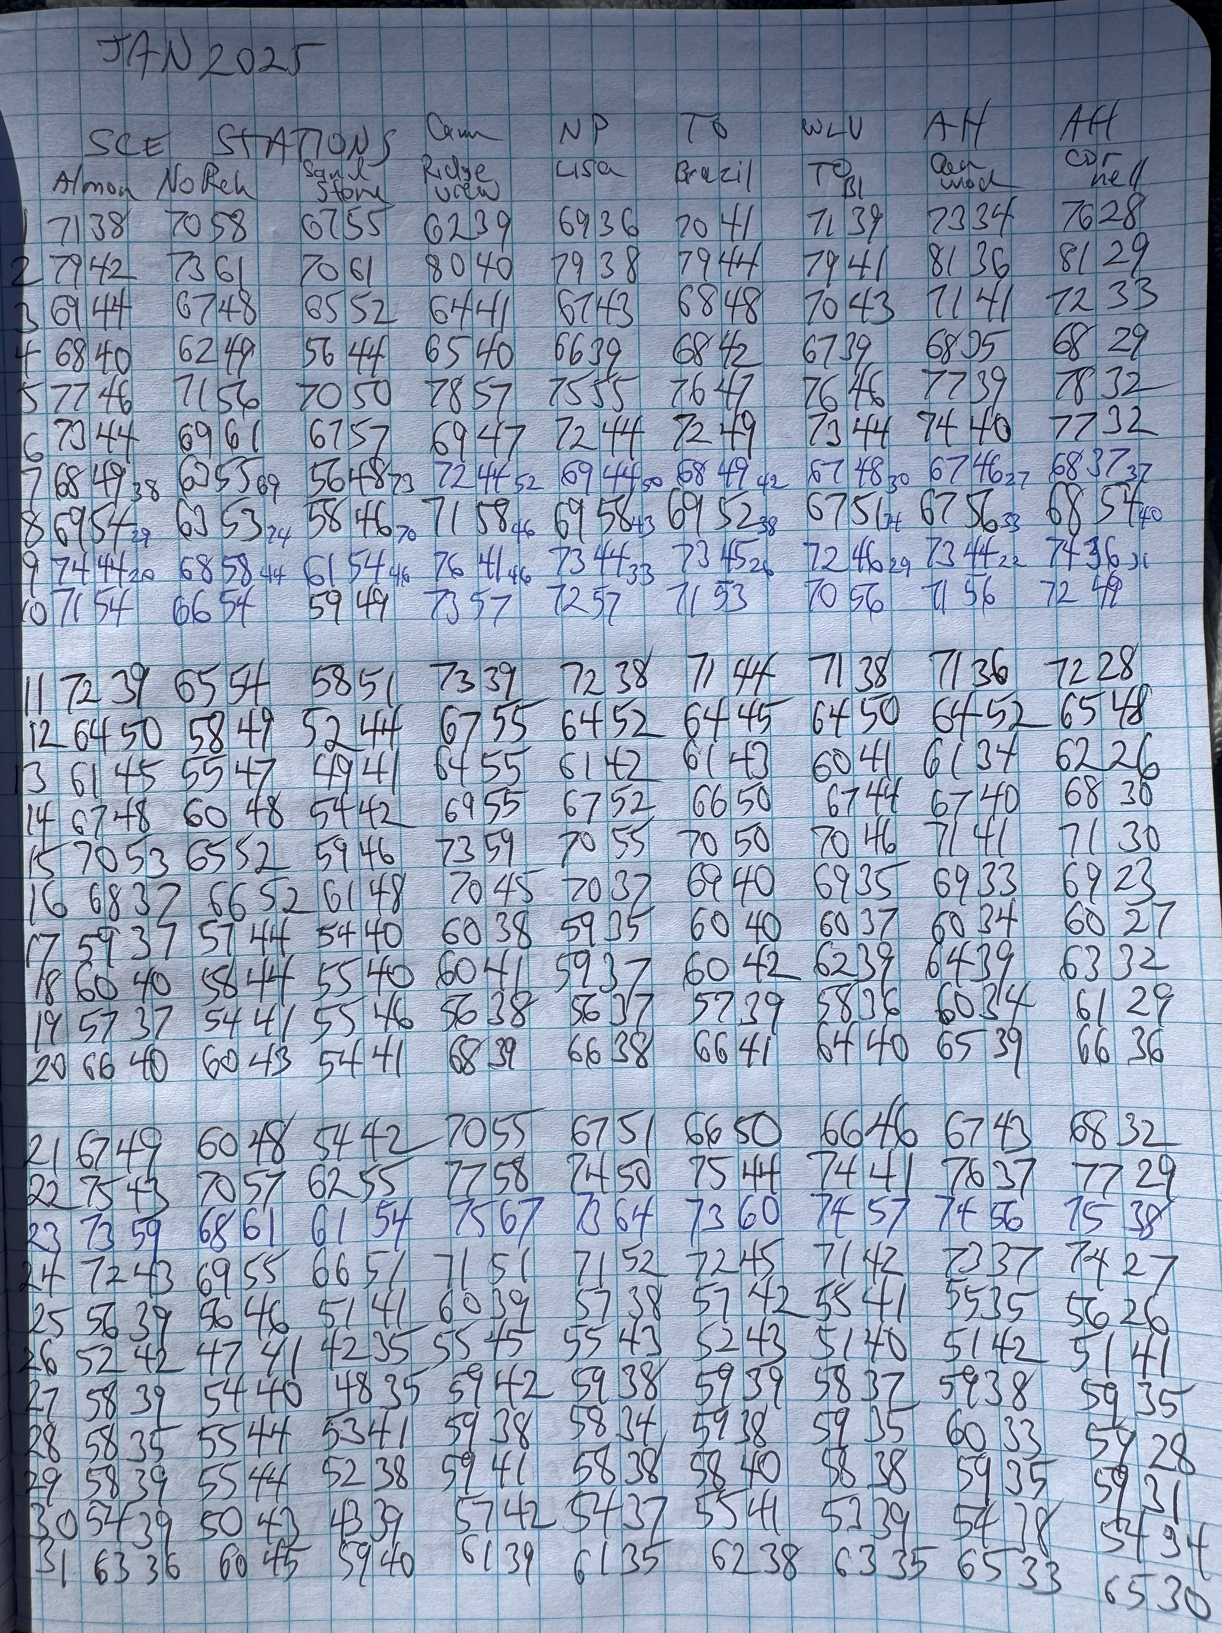 JAN 2025
SCE STATIONS Cam NP TO WLV AH AH
Almon NoReh Sand Stone Ridge view Lisa Brazil TO B1 Cor nell
1 71 38 70 58 67 55 62 39 69 36 70 41 71 39 73 34 76 28
2 79 42 73 61 70 61 80 40 79 38 79 44 79 41 81 36 81 29
3 69 44 67 48 65 52 64 41 67 43 68 48 70 43 71 41 72 33
4 68 40 62 49 56 44 65 40 66 39 68 42 67 39 68 35 68 29
5 77 46 71 56 70 50 78 57 75 55 76 47 76 46 77 39 78 32
6 73 44 69 61 67 57 69 47 72 44 72 49 73 44 74 40 77 32
7 68 49 38 63 55 69 56 48 73 72 44 52 69 44 50 68 49 42 67 48 30 67 46 27 68 37 37
8 69 54 29 63 53 74 58 46 70 71 58 46 69 58 43 69 52 38 67 51 34 67 56 33 68 54 40
9 74 44 20 68 58 44 61 54 46 76 41 46 73 44 33 73 45 26 72 46 29 73 44 22 74 36 31
10 71 54 66 54 59 49 73 57 72 57 71 53 70 56 71 56 72 49
11 72 39 65 54 58 51 73 39 72 38 71 44 71 38 71 36 72 28
12 64 50 58 49 52 44 67 55 64 52 64 45 64 50 64 52 65 48
13 61 45 55 47 49 41 64 55 61 42 61 43 60 41 61 34 62 26
14 67 48 60 48 54 42 69 55 67 52 66 50 67 44 67 40 68 30
15 70 53 65 52 59 46 73 59 70 55 70 50 70 46 71 41 71 30
16 68 37 66 52 61 48 70 45 70 37 69 40 69 35 69 33 69 23
17 59 37 57 44 54 40 60 38 59 35 60 40 60 37 60 34 60 27
18 60 40 58 44 55 40 60 41 59 37 60 42 62 39 64 39 63 32
19 57 37 54 41 55 46 56 38 56 37 57 39 58 36 60 34 61 29
20 66 40 60 43 54 41 68 39 66 38 66 41 64 40 65 39 66 36
21 67 49 60 48 54 42 70 55 67 51 66 50 66 46 67 43 68 32
22 75 43 70 57 62 55 77 58 74 50 75 44 74 41 76 37 77 29
23 73 59 68 61 61 54 75 67 73 64 73 60 74 57 74 56 75 38
24 72 43 69 55 66 51 71 51 71 52 72 45 71 42 73 37 74 27
25 56 39 56 46 51 41 60 39 57 38 57 42 55 41 55 35 56 26
26 52 42 47 41 42 35 55 45 55 43 52 43 51 40 51 42 51 41
27 58 39 54 40 48 35 59 42 59 38 59 39 58 37 59 38 59 35
28 58 35 55 44 53 41 59 38 58 34 59 38 59 35 60 33 59 28
29 58 39 55 44 52 38 59 41 58 38 58 40 58 38 59 35 59 31
30 54 39 50 43 43 39 57 42 54 37 55 41 53 39 54 38 54 34
31 63 36 60 45 59 40 61 39 61 35 62 38 63 35 65 33 65 30